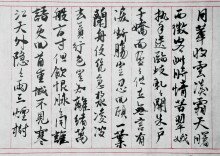 月華收雲淡霜天曙
西徵客此時情苦翠娥
執手送臨歧軋軋開朱戶
千嬌面盈盈佇立無言有
淚斷腸爭忍回顧一葉
蘭舟便恁急槳凌波
去貪行色豈知離緒萬
般方寸但飲恨脉脉同誰
語更回首重城不見寒
江天外隱隱兩三煙樹